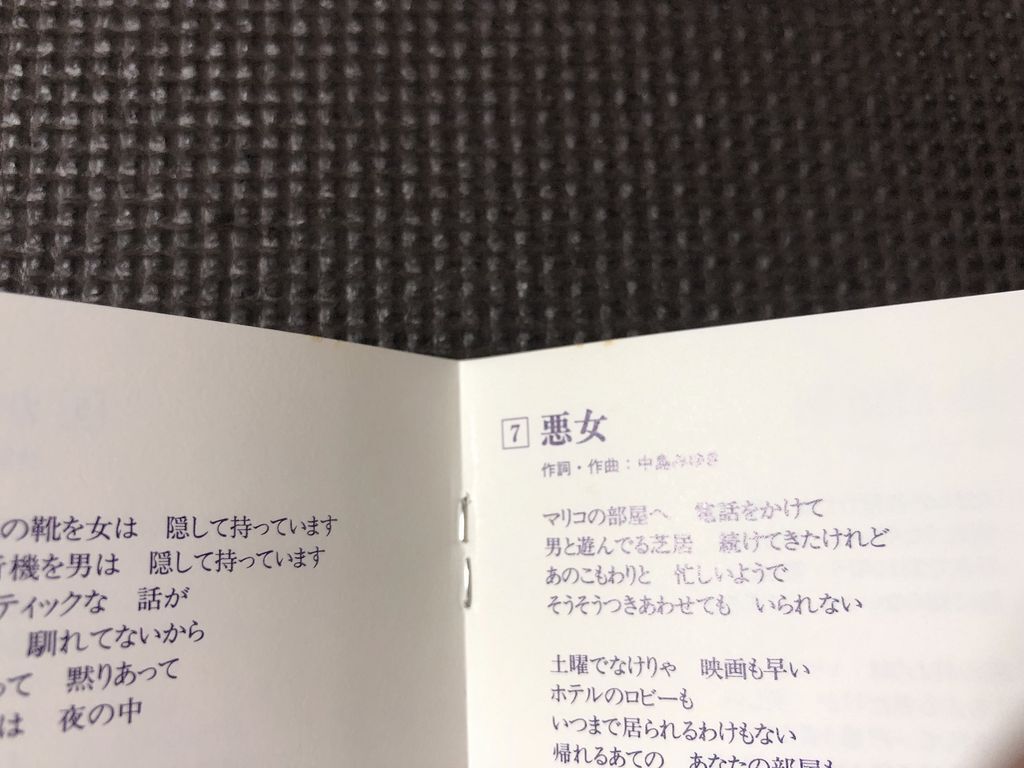 の靴を女は 隠して持っています
機を男は 隠して持っています
ティックな 話が
馴れてないから
って 黙りあって
は 夜の中
7 悪女
作詞・作曲：中島みゆき
マリコの部屋へ 電話をかけて
男と遊んでる芝居 続けてきたけれど
あのこもわりと 忙しいようで
そうそうつきあわせても いられない
土曜でなけりゃ 映画も早い
ホテルのロビーも
いつまで居られるわけもない
帰れるあての あなたの部屋も